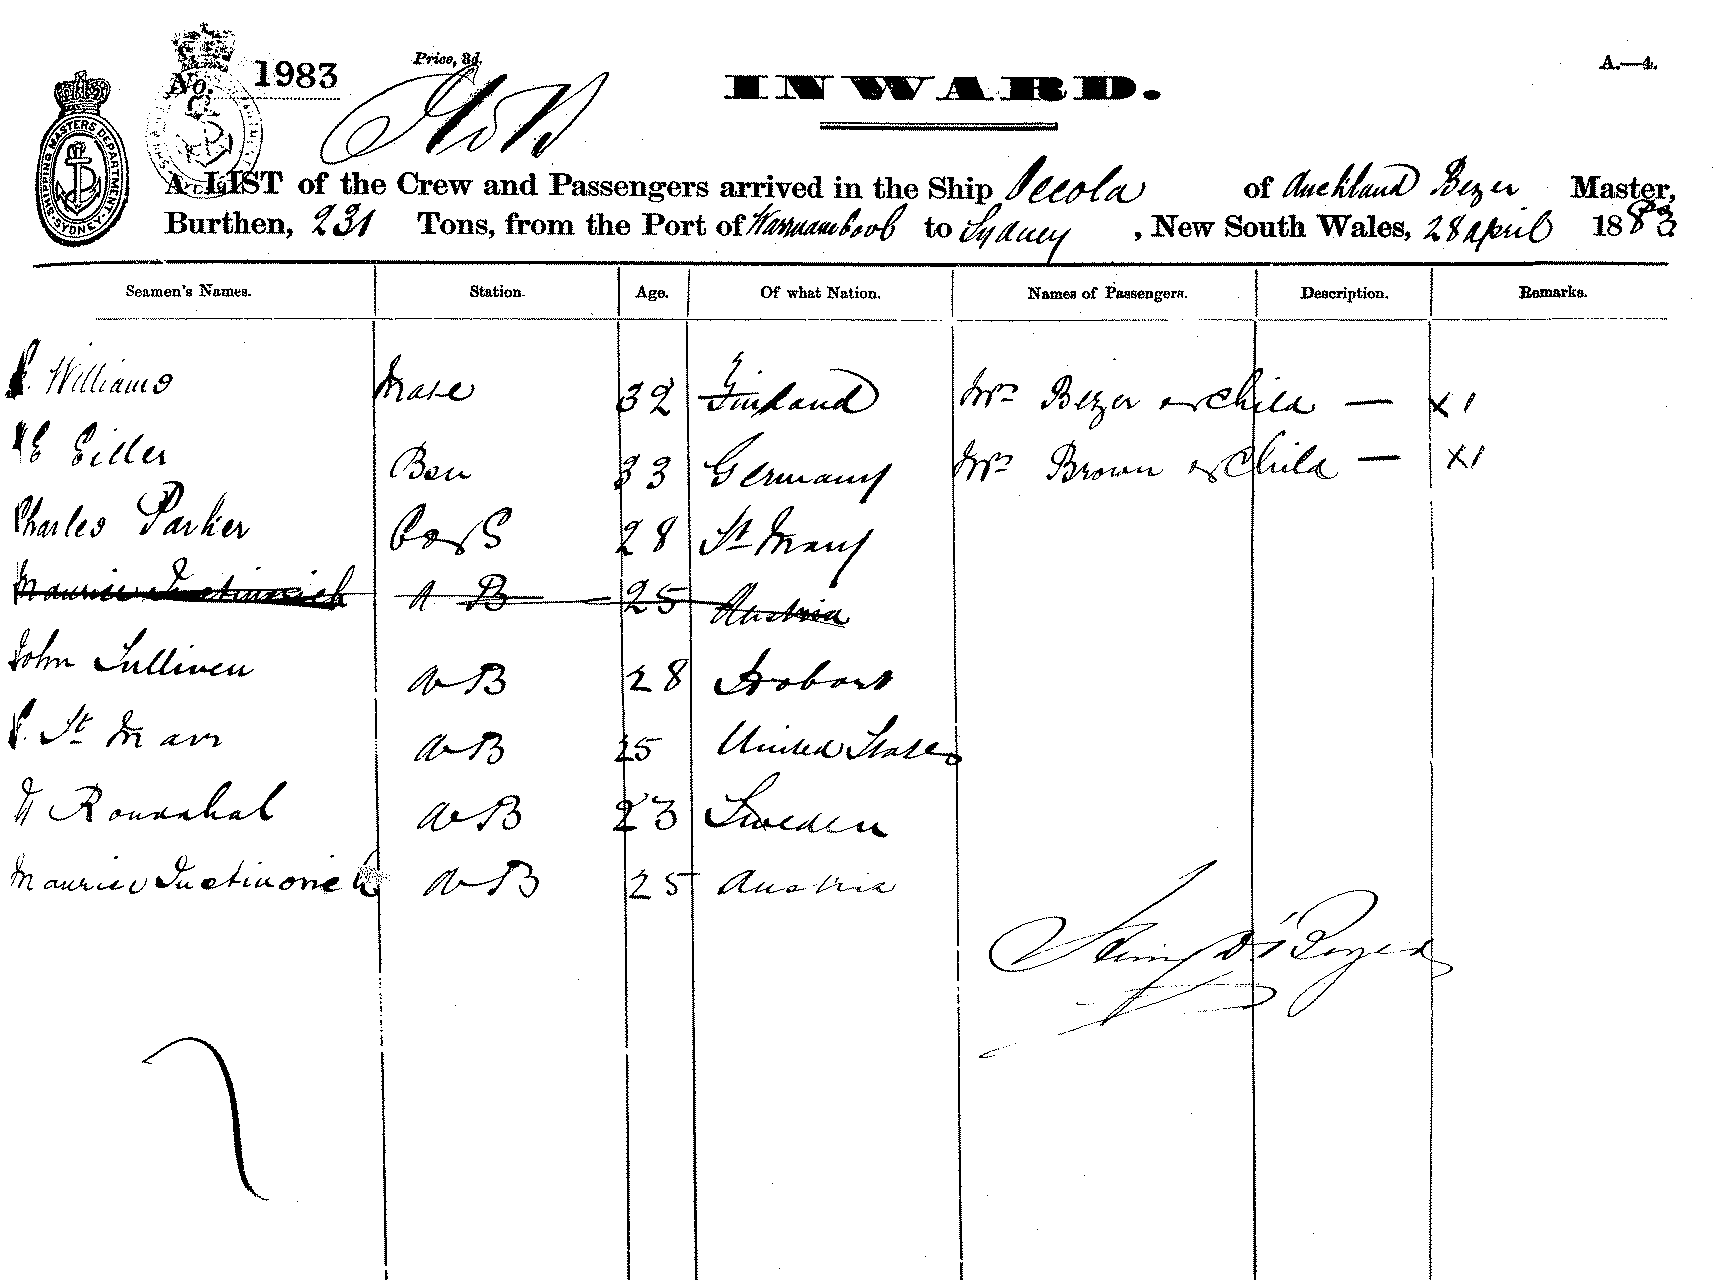 No. 1983
Price, 3d.
INWARD.
A.—4.
SHIPPING MASTERS DEPARTMENT SYDNEY
A LIST of the Crew and Passengers arrived in the Ship Occola of Auckland Bezer Master,
Burthen, 231 Tons, from the Port of Warrnambool to Sydney, New South Wales, 28 April 1883
Seamen's Names. Station. Age. Of what Nation. Names of Passengers. Description. Remarks.
Williams Mate 32 Finland Mrs Bezer & Child — x 1
Eiller 33 Germany Mrs Brown & Child — x 1
Charles Parker C & S 28 St Mary
Maurice Justinovich A B 25 Austria
John Sulliven AB 28 Hobart
P. St Marr AB 25 United States
Roundhal AB 23 Sweden
Maurice Justinovich AB 25 Austria